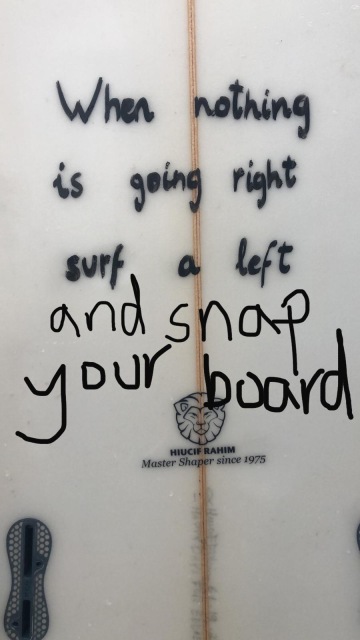 When nothing
is going right
surf a left
and snap
your board
HIUCIF RAHIM
Master Shaper since 1975